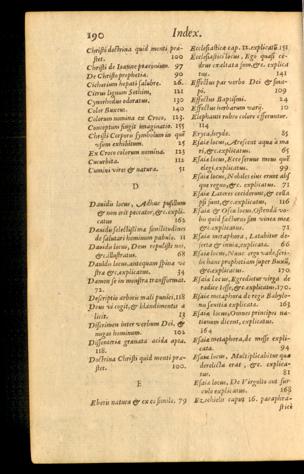 190 Index.
Christi doctrina quid menti præ-
stet. 100
Christi de Ioanne præconium. 97
De Christo prophetia. 90
Cichorium hepati salubre. 26.
Citrus lignum Sethim, 121
Cynorhodus odoratus. 130
Color Buxeus. 140
Colorum nomina ex Croco, 123.
Conceptum fingit imaginatio. 155
Christi Corporis symbolum in quo
visum exhibitum. 25
Ex Croco colorum nomina. 123
Cucurbita. 112
Cumini vires & natura. 51
D
Dauidis locus, Adhuc pusillum
& non erit peccator, &c. expli-
catus 162
Dauidis selectissima similitudines
de salutari hominum patulis. 11
Dauidis locus, Deus repulisti nos,
&c. illustratus. 68
Dauidis locus, antequam spinæ ve
stra &c. explicatus. 34
Damon se in monstra transformat.
72.
Descriptio arboris mali punici. 118
Deus vt cogit, & blandimenta a
licit. 13
Discrimen inter verbum Dei, &
nugas hominum. 102
Dissentaria granata acida apta.
118.
Doctrina Christi quid menti præ-
stet. 100.
E
Eboris natura & ex eo simile. 79
Ecclesiastice cap. 12. explicatus 151
Ecclesiasticus locus, Ego quasi ce-
drus exaltata sum, &c. explica
tus. 141
Effectus par verbo Dei & sina-
pi. 109
Effectus Baptismi. 24
Effectus herbarum varij. 10
Elephanti rubro colore efferuntur.
114
Esaiæ locus, Crescent aqua ma
ri &c. explicatus. 65
Esaiæ locus, Ecce seruus meus quē
elegi, explicatus. 99
Esaiæ locus, Nobiles eius erunt absq
que regno, &c. explicatus. 71
Esaiæ Lateres ceciderunt, & cella
psi sunt, &c. explicatus. 116
Esaiæ & Osea locus, Ostenda vo-
bis quid facturus sim vinea mea
&c. explicatus. 71
Esaiæ metaphora, Latabitur de-
serta & inuia, explicata. 66
Esaiæ 170.
radice Iesse, &c. explicatus. 170.
Esaiæ metaphora de rege Babylo-
nis explicata 163
Esaiæ locus, Omnes principes na-
tionum dicent, explicatus.
164
Esaiæ metaphora, de messe expli-
cata. 94
Esaiæ locus, Multiplicabitur quæ
derelicta erat, &c. explica-
tur. 81
Esaiæ locus, De Virgulto aut sur-
culo explicatus. 168
Ezechielis caput 16. paraphra-
sticè